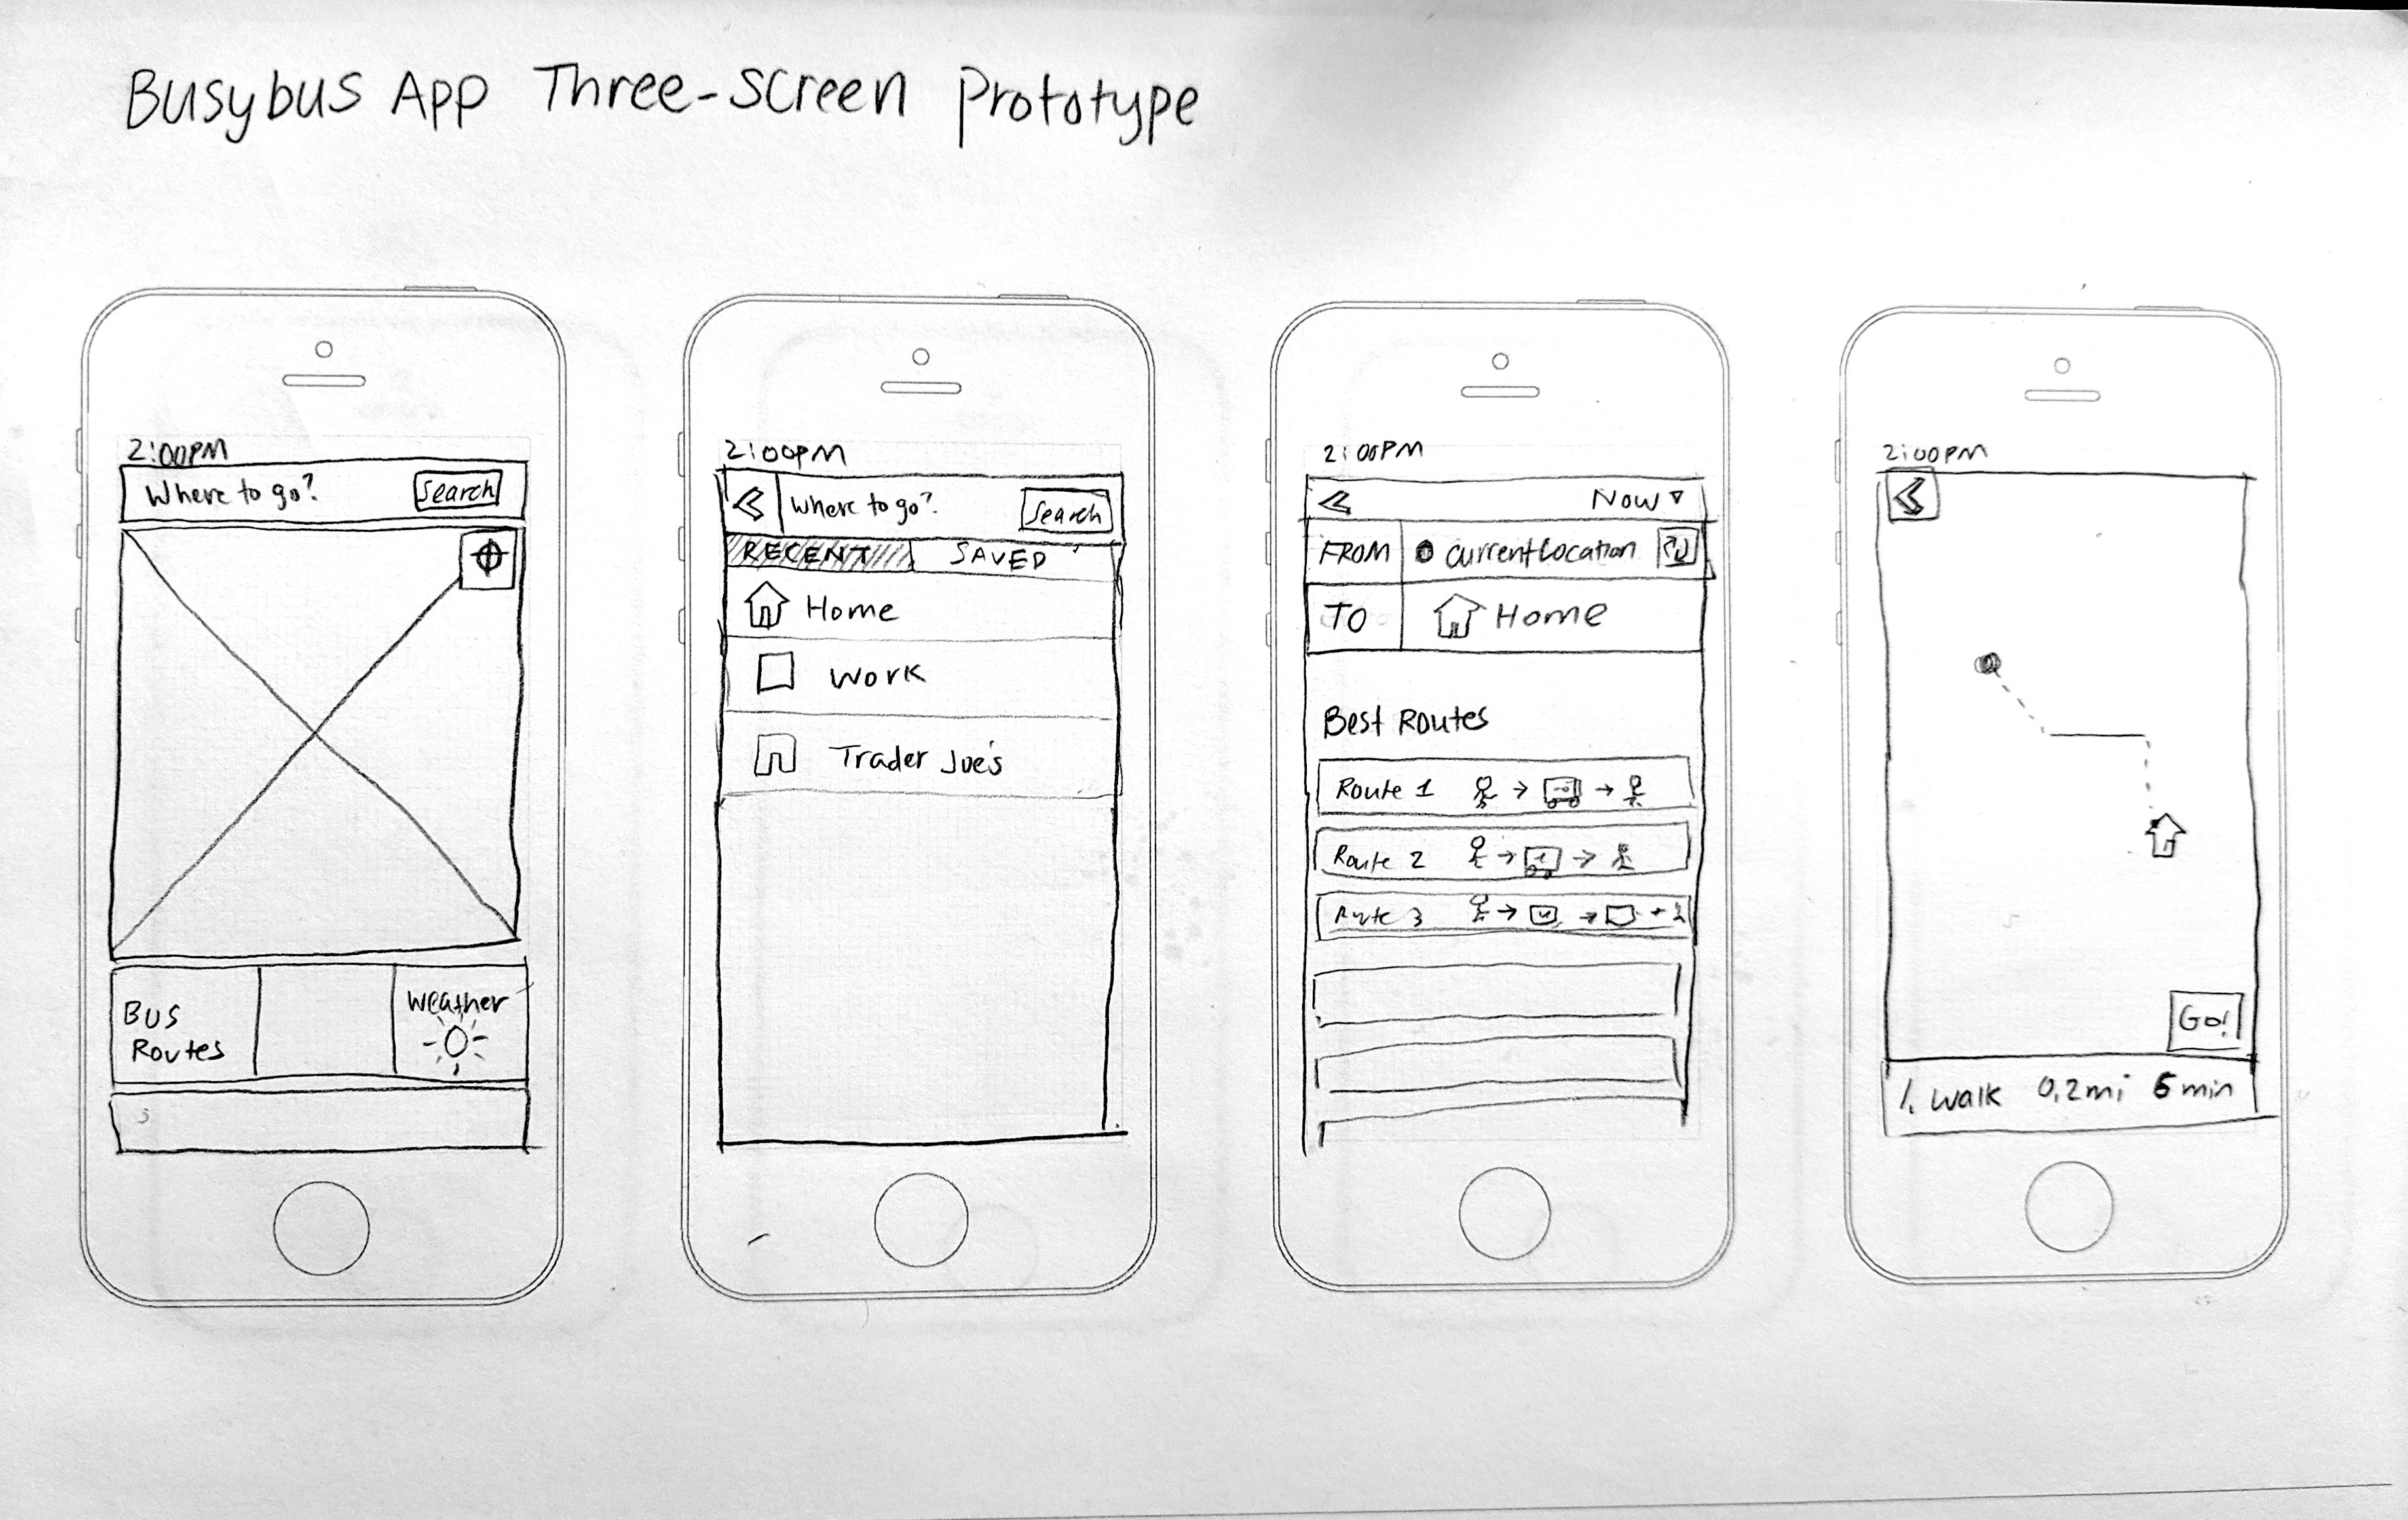 Busybus App Three-Screen Prototype
2:00PM
Where to go? Search
Bus
Routes
Weather
2:00PM
Where to go? Search
RECENT SAVED
Home
Work
Trader Joe's
2:00PM
Now
FROM currentlocation
TO Home
Best Routes
Route 1
Route 2
Route 3
2:00PM
Go!
1. Walk 0.2mi 5 min